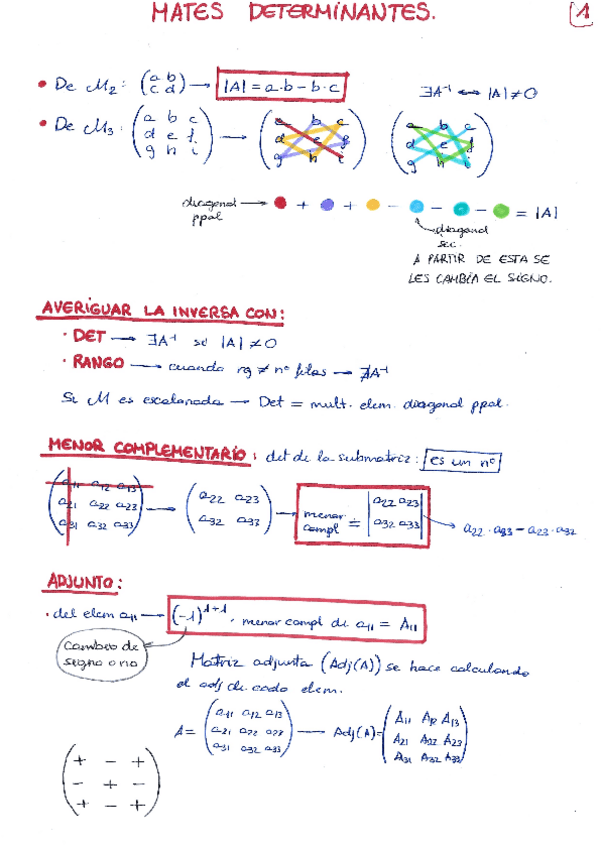 MATES DETERMINANTES. 1
• De M2: (a b / c d) → |A| = a·b - b·c ∃A⁻¹ ↔ |A| ≠ 0
• De M3: (a b c / d e f / g h i) → (a b c / d e f / g h i) (a b c / d e f / g h i)
diagonal ppal → ● + ● + ● - ● - ● - ● = |A|
diagonal sec.
A PARTIR DE ESTA SE
LES CAMBIA EL SIGNO.
AVERIGUAR LA INVERSA CON:
· DET → ∃A⁻¹ si |A| ≠ 0
· RANGO → cuando rg ≠ nº filas → ∄A⁻¹
Si M es escalonada → Det = mult. elem. diagonal ppal.
MENOR COMPLEMENTARIO: det de la submatriz: es un nº
(a11 a12 a13 / a21 a22 a23 / a31 a32 a33) → (a22 a23 / a32 a33) → menor compl = |a22 a23 / a32 a33| → a22 · a33 - a23 · a32
ADJUNTO:
· del elem a11 → (-1)¹⁺¹ · menor compl de a11 = A11
Cambio de
signo o no
Matriz adjunta (Adj(A)) se hace calculando
el adj de cada elem.
A = (a11 a12 a13 / a21 a22 a23 / a31 a32 a33) — Adj(A) = (A11 A12 A13 / A21 A22 A23 / A31 A32 A33)
(+ - + / - + - / + - +)